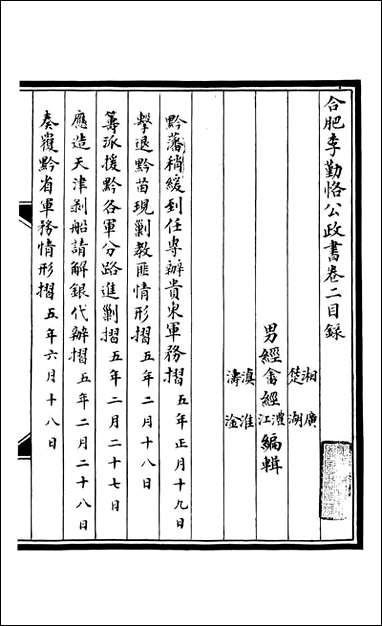 合肥李勤恪公政書卷二目錄
湘 廣
楚 潮
男經畬經澧編輯
江
滇 淮
濤 淦
黔藩稍緩到任專辦貴東軍務摺五年正月十九日
擊退黔苗現剿教匪情形摺五年二月十八日
籌派援黔各軍分路進剿摺五年二月二十七日
應造天津剝船請解銀代辦摺五年二月二十八日
奏覆黔省軍務情形摺五年六月十八日